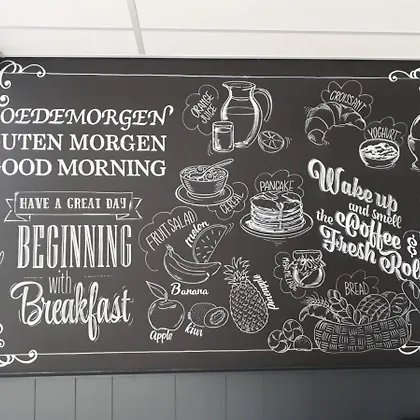 OEDEMORGEN
UTEN MORGEN
OOD MORNING
HAVE A GREAT DAY
BEGINNING
with
Breakfast
ORANGE
JUICE
CROISSANT
YOGHURT
CEREAL
PANCAKE
FRUIT SALAD
melon
Banana
Apple
kiwi
Pineapple
Wake up
and smell
the Coffee &
Fresh Ro
BREAD